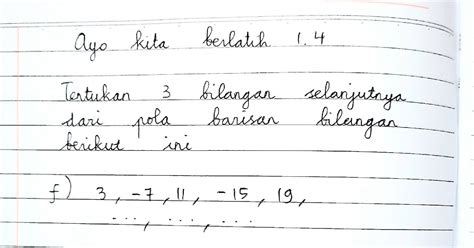 Ayo kita berlatih 1.4
Tentukan 3 bilangan selanjutnya
dari pola barisan bilangan
berikut ini
f) 3, -7, 11, -15, 19,
..., ..., ...